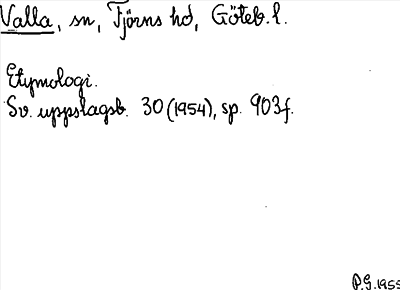 Valla, sn, Tjörns hd, Göteb. l.
Etymologi.
Sv. uppslagsb. 30 (1954), sp. 903f.
P.G. 1955